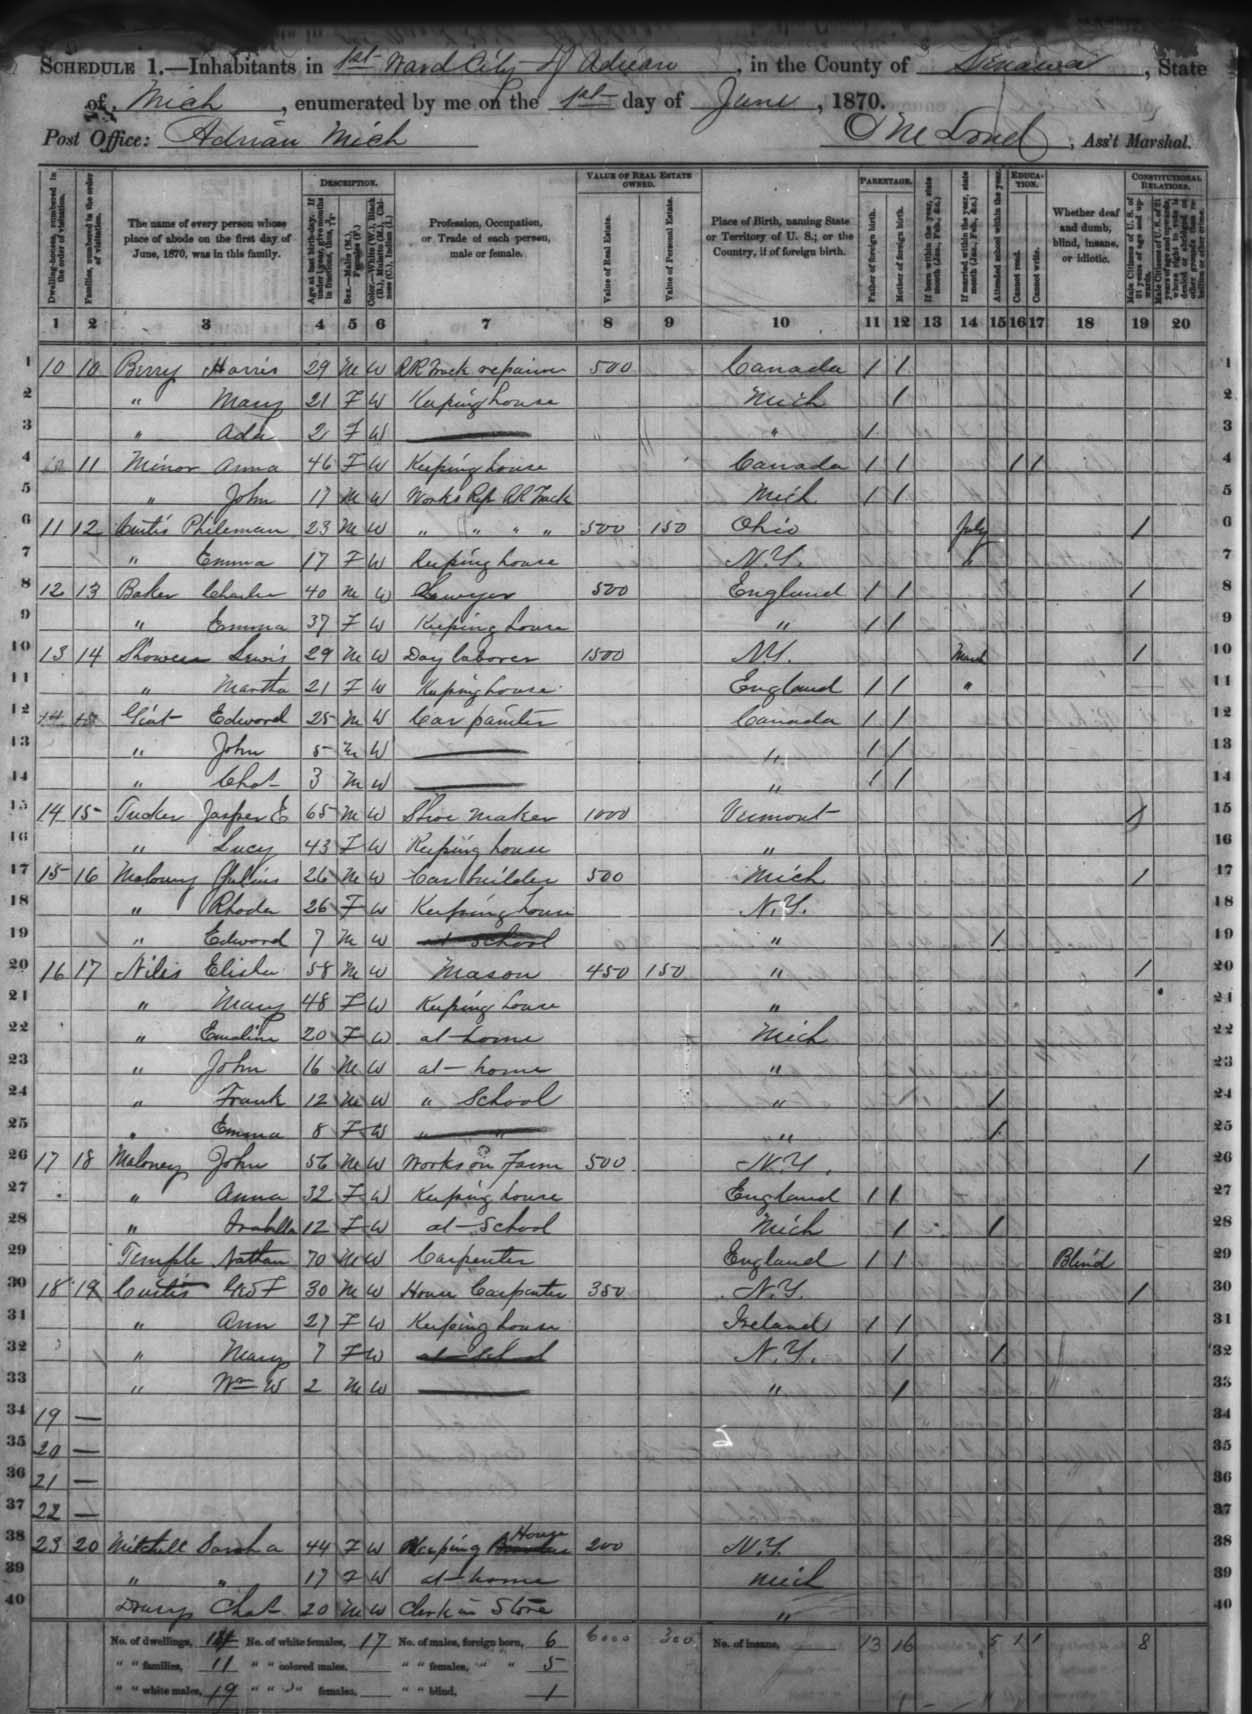 SCHEDULE 1.—Inhabitants in 1st Ward City of Adrian, in the County of Lenawee, State
of Mich, enumerated by me on the 1st day of June, 1870.
Post Office: Adrian Mich , Ass't Marshal.
DESCRIPTION. VALUE OF REAL ESTATE OWNED. PARENTAGE. EDUCATION. CONSTITUTIONAL RELATIONS.
Dwelling-houses, numbered in the order of visitation.
Families, numbered in the order of visitation.
The name of every person whose place of abode on the first day of June, 1870, was in this family.
Age at last birth-day. If under 1 year, give months in fractions, thus, 3/12
Sex.—Males (M.), Females (F.)
Color.—White (W.), Black (B.), Mulatto (M.), Chinese (C.), Indian (I.)
Profession, Occupation, or Trade of each person, male or female.
Value of Real Estate.
Value of Personal Estate.
Place of Birth, naming State or Territory of U. S.; or the Country, if of foreign birth.
Father of foreign birth.
Mother of foreign birth.
If born within the year, state month (Jan., Feb., &c.)
If married within the year, state month (Jan., Feb., &c.)
Attended school within the year.
Cannot read.
Cannot write.
Whether deaf and dumb, blind, insane, or idiotic.
Male Citizens of U. S. of 21 years of age and upwards.
Male Citizens of U. S. of 21 years of age and upwards, whose right to vote is denied or abridged on other grounds than rebellion or other crime.
1 2 3 4 5 6 7 8 9 10 11 12 13 14 15 16 17 18 19 20
1 10 10 Berry Harris 29 M W RR Track repairer 500 Canada 1 1 1
2 " Mary 21 F W Keeping house Mich 1 2
3 " Ada 2 F W " 1 3
4 11 Minor Anna 46 F W Keeping house Canada 1 1 1 1 4
5 " John 17 M W Works Rep RR Track Mich 1 1 5
6 11 12 Curtis Phileman 23 M W " " " " 500 150 Ohio July 1 6
7 " Emma 17 F W Keeping house N.Y. " 7
8 12 13 Baker Charles 40 M W Sawyer 500 England 1 1 1 8
9 " Emma 37 F W Keeping house " 1 1 9
10 13 14 Lewis 29 M W Day laborer 1500 N.Y. March 1 10
11 " Martha 21 F W Keeping house England 1 1 " 11
12 14 15 Edward 25 M W Car painter Canada 1 1 12
13 " John 5 M W " 1 1 13
14 " Chas 3 M W " 1 1 14
15 14 15 Tucker Jasper E 65 M W Shoe maker 1000 Vermont 1 15
16 " Lucy 43 F W Keeping house " 16
17 15 16 Maloney Julius 26 M W Car builder 500 Mich 1 17
18 " Rhoda 26 F W Keeping house N.Y. 18
19 " Edward 7 M W at School " 1 19
20 16 17 Niles Elisha 58 M W Mason 450 150 " 1 20
21 " Mary 48 F W Keeping house " 21
22 " Emaline 20 F W at home Mich 22
23 " John 16 M W at home " 23
24 " Frank 12 M W " School " 1 24
25 " Emma 8 F W " " " 1 25
26 17 18 Maloney John 56 M W Works on Farm 500 N.Y. 1 26
27 " Anna 32 F W Keeping house England 1 1 27
28 " Isabella 12 F W at School Mich 1 1 28
29 Temple Nathan 70 M W Carpenter England 1 1 Blind 29
30 18 19 Curtis Geo F 30 M W House Carpenter 350 N.Y. 1 30
31 " Ann 27 F W Keeping house Ireland 1 1 31
32 " Mary 7 F W at School N.Y. 1 1 32
33 " Wm W 2 M W " 1 33
34 19 — 34
35 20 — 35
36 21 — 36
37 22 — 37
38 23 20 Mitchell Sarah a 44 F W Keeping House 200 N.Y. 38
39 " " 17 F W at home Mich 39
40 Drury Chat 20 M W Clerk in Store " 40
No. of dwellings, No. of white females, 17 No. of males, foreign born, 6 6000 300 No. of insane, 13 16 5 1 1 8
" " families, 11 " " colored males, " " females, " " 5
" " white males, 19 " " " females, " " blind, 1